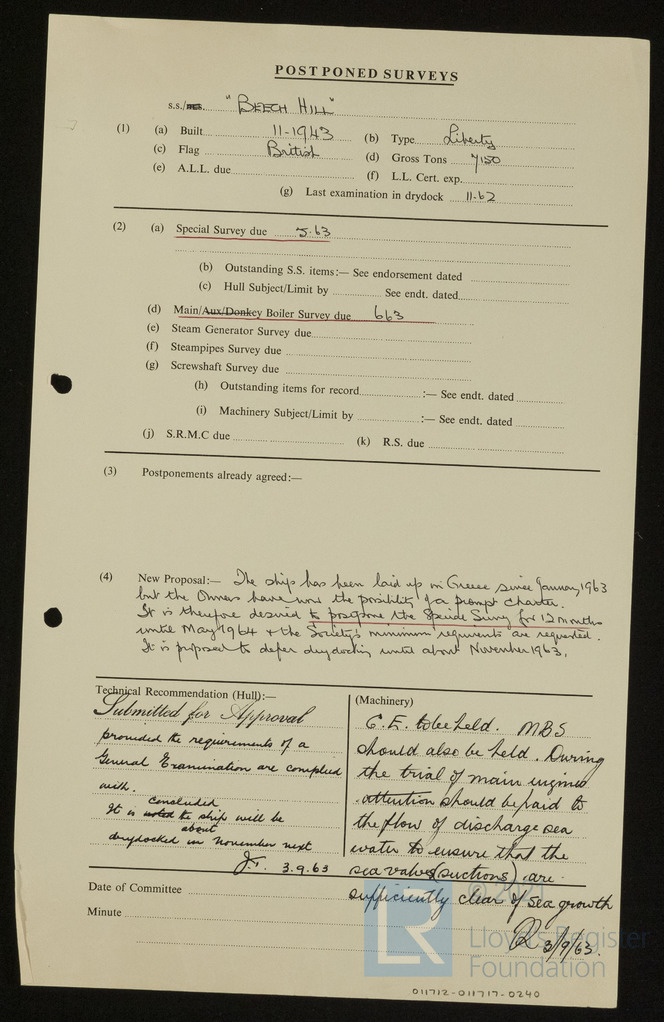 POSTPONED SURVEYS
s.s./ "BEECH HILL"
(1) (a) Built 11-1943 (b) Type Liberty
(c) Flag British (d) Gross Tons 7150
(e) A.L.L. due (f) L.L. Cert. exp.
(g) Last examination in drydock 11-62
(2) (a) Special Survey due 5.63
(b) Outstanding S.S. items:— See endorsement dated
(c) Hull Subject/Limit by See endt. dated
(d) Main/Aux/Donkey Boiler Survey due 663
(e) Steam Generator Survey due
(f) Steampipes Survey due
(g) Screwshaft Survey due
(h) Outstanding items for record :— See endt. dated
(i) Machinery Subject/Limit by :— See endt. dated
(j) S.R.M.C due (k) R.S. due
(3) Postponements already agreed:—
(4) New Proposal:— The ship has been laid up in Greece since January, 1963
but the Owners have now the possibility of a prompt charter.
It is therefore desired to postpone the Special Survey for 12 months
until May 1964 & the Society's minimum requirements are requested.
It is proposed to defer drydocking until about November 1963.
Technical Recommendation (Hull):—
Submitted for Approval
provided the requirements of a
General Examination are complied
with.
concluded
It is noted the ship will be
about
drydocked in November next
J.T. 3.9.63
(Machinery)
G.E. to be held. MBS
should also be held. During
the trial of main engines
attention should be paid to
the flow of discharge sea
water to ensure that the
sea valves (suctions) are
sufficiently clear of sea growth
3/9/63.
Date of Committee
Minute
© 2021
LR
Lloyd's Register
Foundation
011712-011717-0240